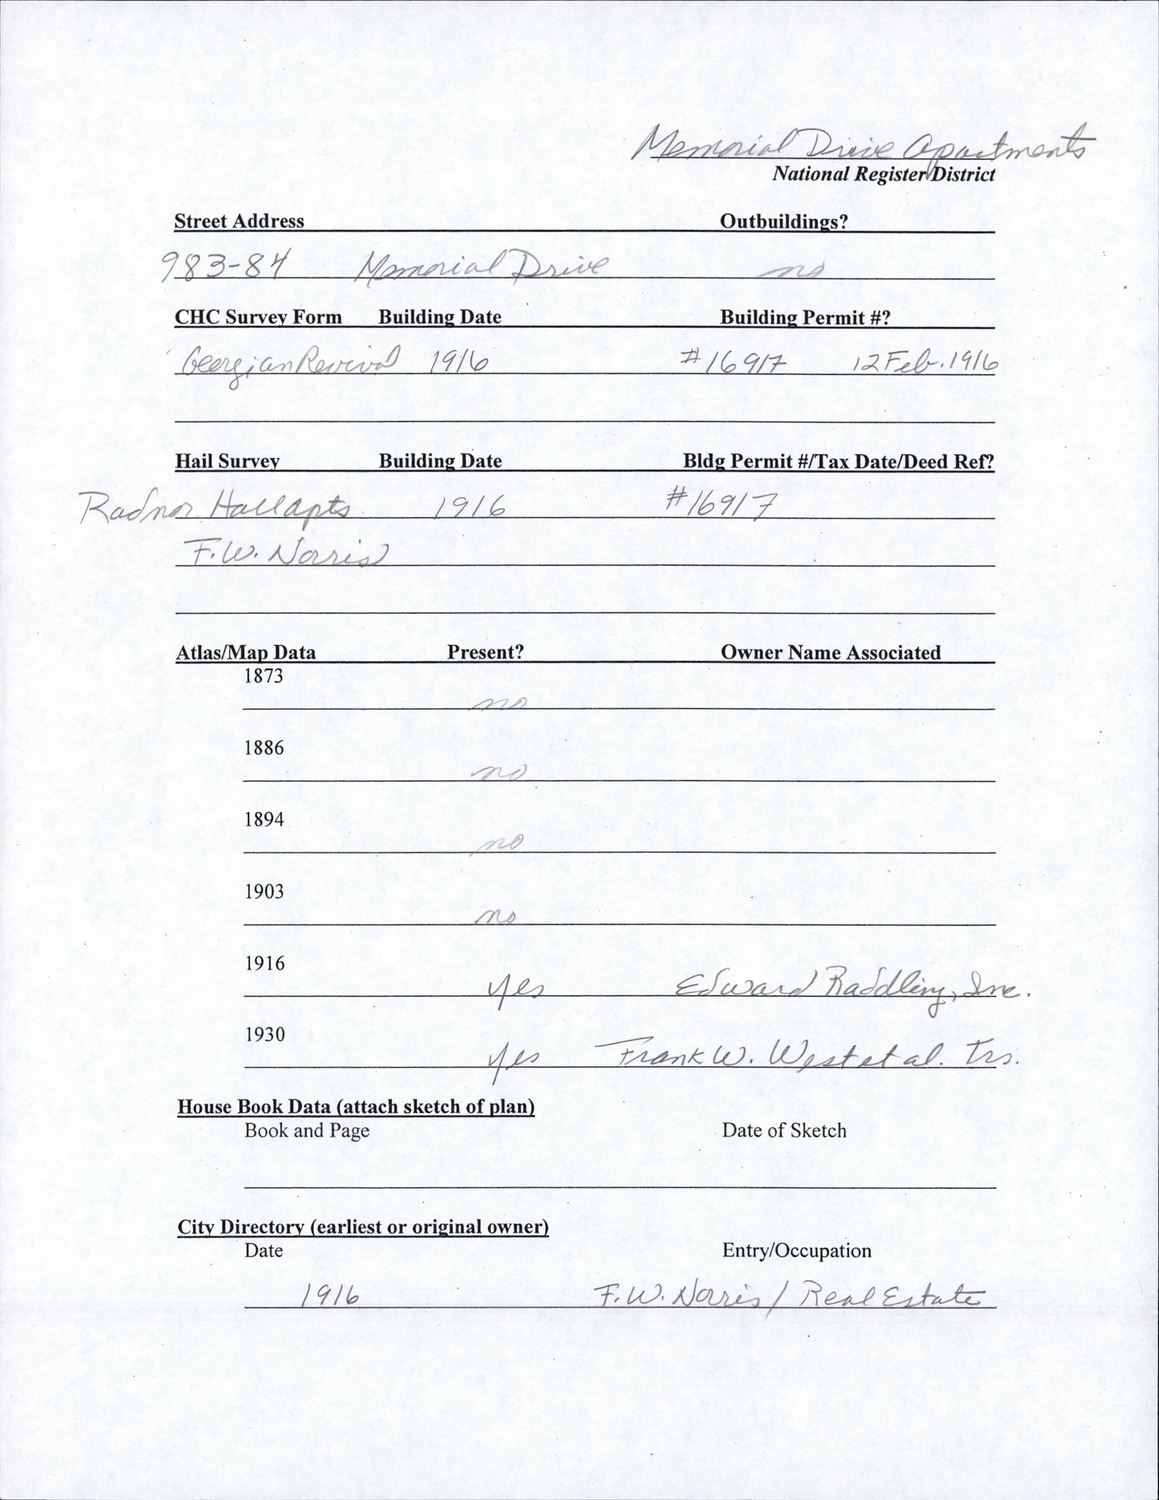 Memorial Drive Apartments
National Register District
Street Address Outbuildings?
983-84 Memorial Drive no
CHC Survey Form Building Date Building Permit #?
Georgian Revival 1916 #16917 12 Feb. 1916
Hail Survey Building Date Bldg Permit #/Tax Date/Deed Ref?
Radnor Hall apts 1916 #16917
F.W. Norris
Atlas/Map Data Present? Owner Name Associated
1873
no
1886
no
1894
no
1903
no
1916
yes Edward Raddling, Inc.
1930
yes Frank W. West et al. Trs.
House Book Data (attach sketch of plan)
Book and Page Date of Sketch
City Directory (earliest or original owner)
Date Entry/Occupation
1916 F.W. Norris / Real Estate